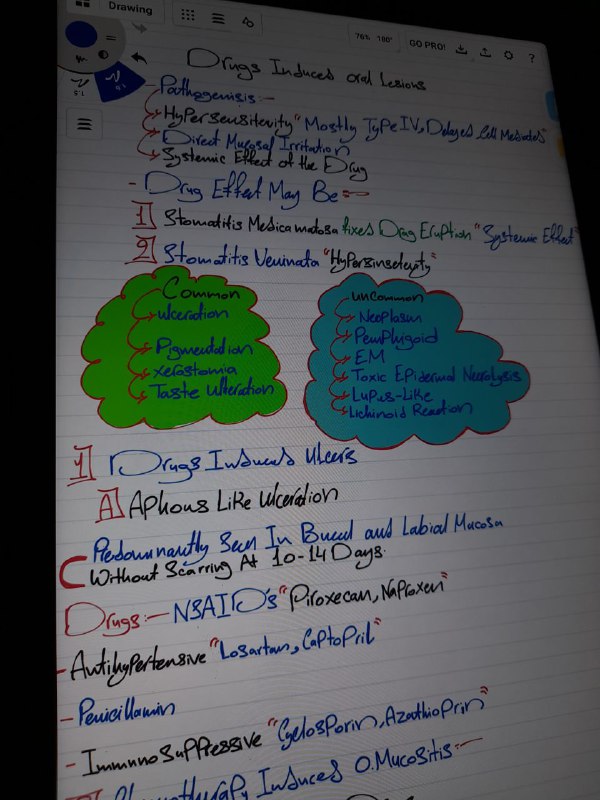 Drawing
76% 180° GO PRO! ?
Drugs Induced oral Lesions
Pathogenisis:-
HyPersensiterity "Mostly TyPe IV, Delayed Cell Mediated"
Direct Mucosal Irritation
Systemic Effect of the Drug
- Drug Effect May Be :-
1 Stomatitis Medicamatosa fixed Drug Eruption "Systemic Effect"
2 Stomatitis Veninata "HyPersinseterity"
Common
ulceration
Pigmentation
xerostomia
Taste Ulteration
uncommon
NeoPlasm
PemPhigoid
EM
Toxic EPidermal Necrolysis
LuPus-Like
Lichinoid Reaction
1 Drugs Induced Ulcers
A APhous Like Ulceration
Predomunantly Seen In Buccal and Labial Mucosa
Without Scarring At 10-14 Days.
Drugs:- NSAID's "Piroxecam, NaProxen"
- AntihyPertensive "Losartan, CaPtoPril"
- Penicillamin
- ImmunoSuPPressive "CyclosPorin, AzathioPrin"
Induced O.Mucositis:-